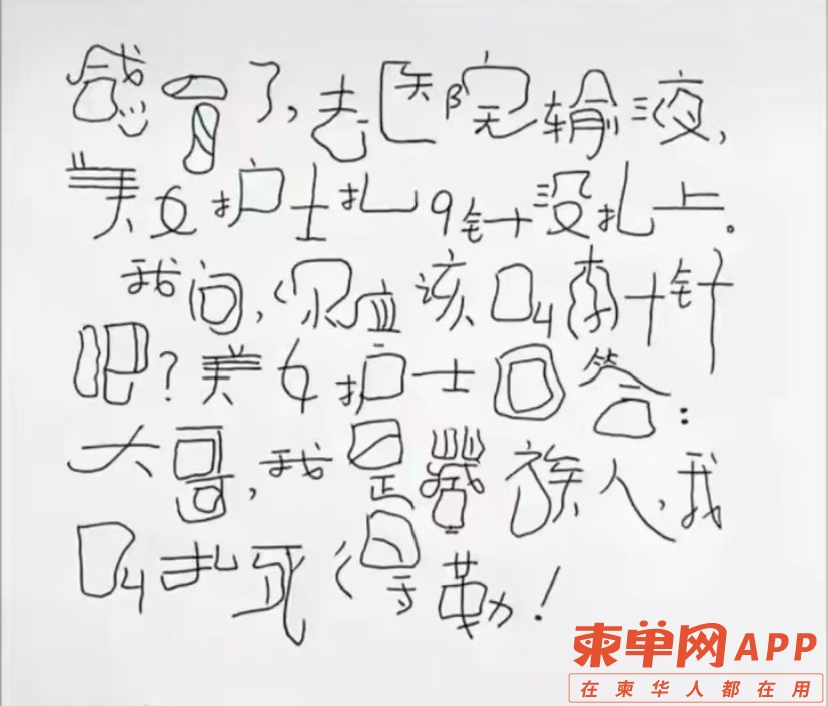 感冒了,去医院输液,
美女护士扎9针没扎上。
我问,你应该叫李十针
吧?美女护士回答:
大哥,我是藏族人,我
叫扎死得勒!
柬单网APP
在柬华人都在用